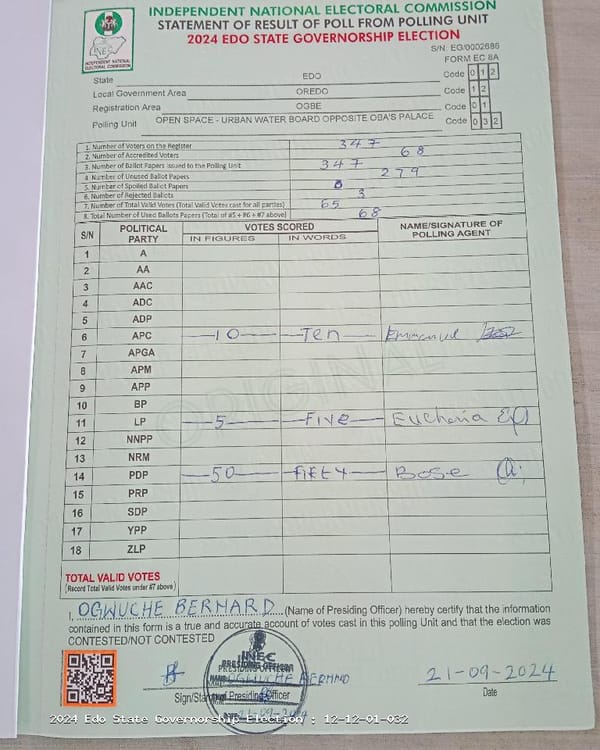 INDEPENDENT NATIONAL ELECTORAL COMMISSION
STATEMENT OF RESULT OF POLL FROM POLLING UNIT
2024 EDO STATE GOVERNORSHIP ELECTION
INEC
INDEPENDENT NATIONAL
ELECTORAL COMMISSION
S/N: EG/0002686
FORM EC 8A
State EDO Code 0 1 2
Local Government Area OREDO Code 1 2
Registration Area OGBE Code 0 1
Polling Unit OPEN SPACE - URBAN WATER BOARD OPPOSITE OBA'S PALACE Code 0 3 2
1. Number of Voters on the Register 347
2. Number of Accredited Voters 68
3. Number of Ballot Papers issued to the Polling Unit 347
4. Number of Unused Ballot Papers 279
5. Number of Spoiled Ballot Papers 0
6. Number of Rejected Ballots 3
7. Number of Total Valid Votes (Total Valid Votes cast for all parties) 65
8. Total Number of Used Ballots Papers (Total of #5 + #6 + #7 above) 68
S/N POLITICAL PARTY VOTES SCORED NAME/SIGNATURE OF POLLING AGENT
IN FIGURES IN WORDS
1 A
2 AA
3 AAC
4 ADC
5 ADP
6 APC 10 Ten Emmanuel
7 APGA
8 APM
9 APP
10 BP
11 LP 5 Five Eucharia
12 NNPP
13 NRM
14 PDP 50 Fifty Bose
15 PRP
16 SDP
17 YPP
18 ZLP
ORIGINAL
TOTAL VALID VOTES
(Record Total Valid Votes under #7 above)
I, OGWUCHE BERNARD (Name of Presiding Officer) hereby certify that the information
contained in this form is a true and accurate account of votes cast in this polling Unit and that the election was
CONTESTED/NOT CONTESTED
INEC
PRESIDING OFFICER
NAME OGWUCHE BERNARD
21-09-2024
Date
Presiding Officer
DATE 21-09-2024
2024 Edo State Governorship Election : 12-12-01-032